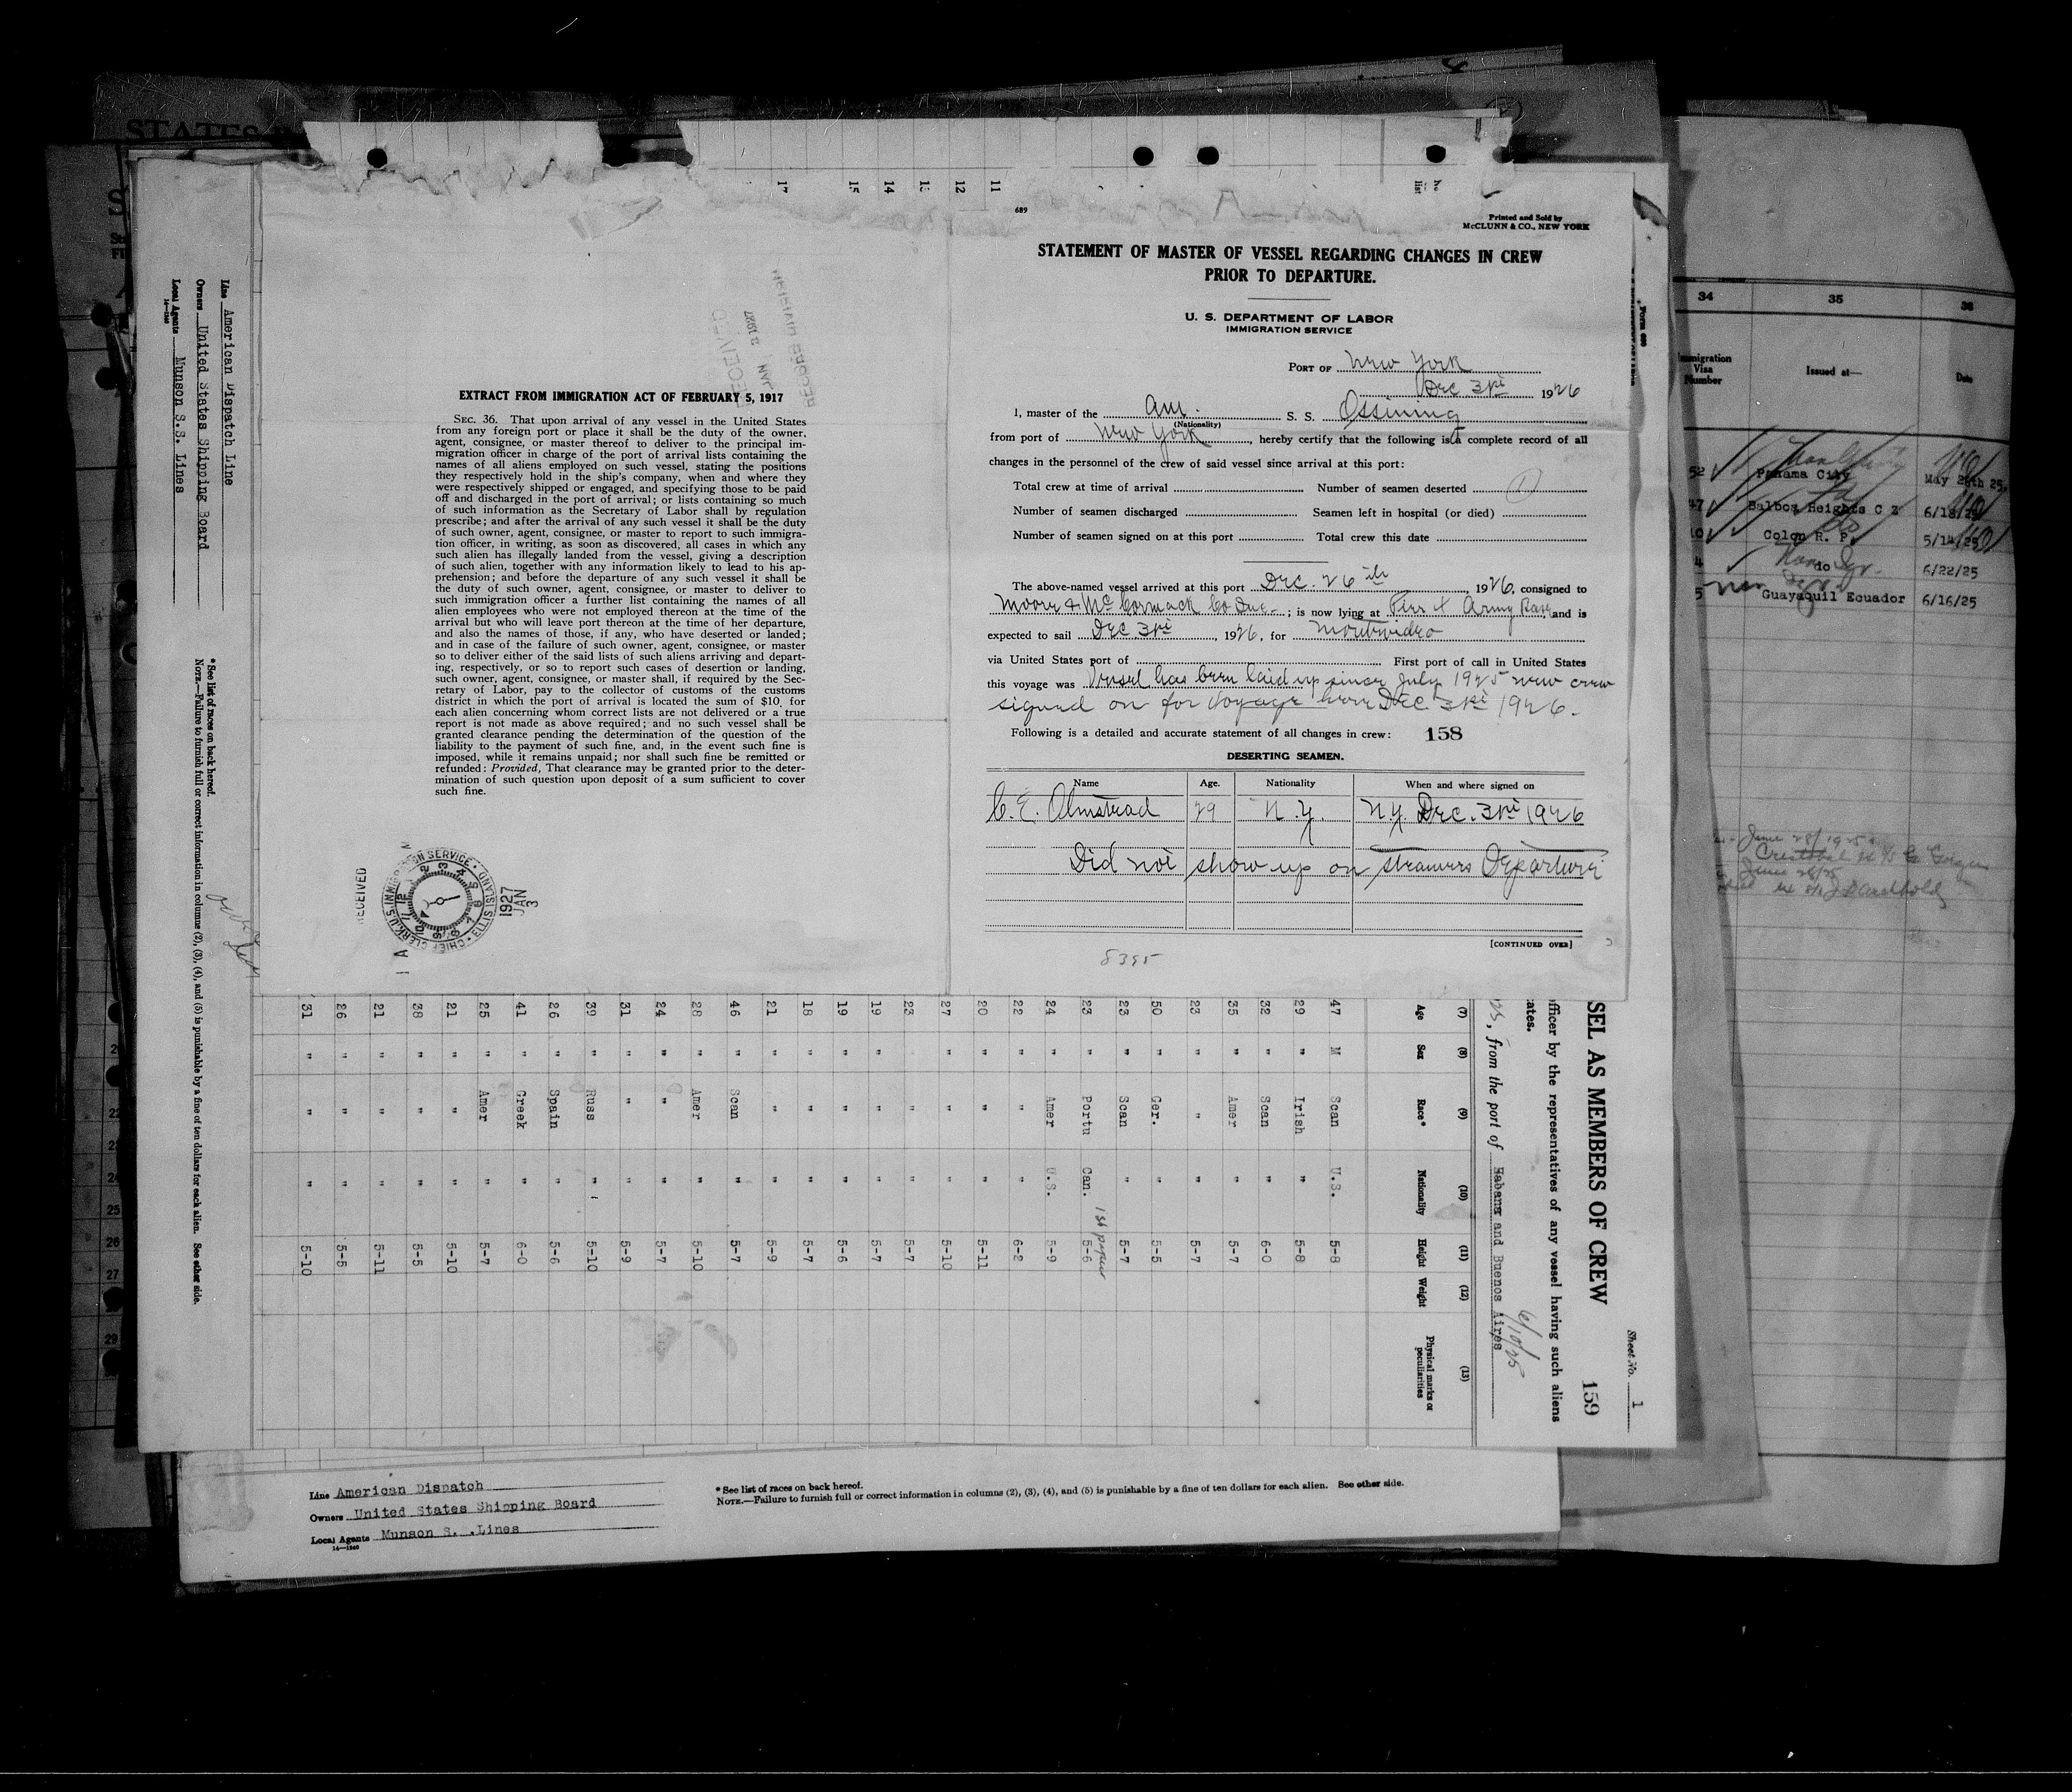 Line American Dispatch Line
Owners United States Shipping Board
Local Agents Munson S.S. Lines
14—1240
* See list of races on back hereof.
NOTE.—Failure to furnish full or correct information in columns (2), (3), (4), and (5) is punishable by a fine of ten dollars for each alien. See other side.
17 15 14 12 11
689
RECEIVED
JAN 3 1927
RECORD DIVISION
EXTRACT FROM IMMIGRATION ACT OF FEBRUARY 5, 1917
SEC. 36. That upon arrival of any vessel in the United States
from any foreign port or place it shall be the duty of the owner,
agent, consignee, or master thereof to deliver to the principal im-
migration officer in charge of the port of arrival lists containing the
names of all aliens employed on such vessel, stating the positions
they respectively hold in the ship's company, when and where they
were respectively shipped or engaged, and specifying those to be paid
off and discharged in the port of arrival; or lists containing so much
of such information as the Secretary of Labor shall by regulation
prescribe; and after the arrival of any such vessel it shall be the duty
of such owner, agent, consignee, or master to report to such immigra-
tion officer, in writing, as soon as discovered, all cases in which any
such alien has illegally landed from the vessel, giving a description
of such alien, together with any information likely to lead to his ap-
prehension; and before the departure of any such vessel it shall be
the duty of such owner, agent, consignee, or master to deliver to
such immigration officer a further list containing the names of all
alien employees who were not employed thereon at the time of the
arrival but who will leave port thereon at the time of her departure,
and also the names of those, if any, who have deserted or landed;
and in case of the failure of such owner, agent, consignee, or master
so to deliver either of the said lists of such aliens arriving and depart-
ing, respectively, or so to report such cases of desertion or landing,
such owner, agent, consignee, or master shall, if required by the Sec-
retary of Labor, pay to the collector of customs of the customs
district in which the port of arrival is located the sum of $10 for
each alien concerning whom correct lists are not delivered or a true
report is not made as above required; and no such vessel shall be
granted clearance pending the determination of the question of the
liability to the payment of such fine, and, in the event such fine is
imposed, while it remains unpaid; nor shall such fine be remitted or
refunded: Provided, That clearance may be granted prior to the deter-
mination of such question upon deposit of a sum sufficient to cover
such fine.
RECEIVED
1927 JAN 3
Printed and Sold by
McCLUNN & CO., NEW YORK
STATEMENT OF MASTER OF VESSEL REGARDING CHANGES IN CREW
PRIOR TO DEPARTURE.
U. S. DEPARTMENT OF LABOR
IMMIGRATION SERVICE
PORT OF New York
Dec 31st 1926
I, master of the Am. S. S. Ossining
(Nationality)
from port of New York, hereby certify that the following is a complete record of all
changes in the personnel of the crew of said vessel since arrival at this port:
Total crew at time of arrival Number of seamen deserted 1
Number of seamen discharged Seamen left in hospital (or died)
Number of seamen signed on at this port Total crew this date
The above-named vessel arrived at this port Dec. 26th, 1926, consigned to
Moore & McCormack Co Inc; is now lying at Pier 4 Army Base, and is
expected to sail Dec 31st, 1926, for Montevideo
via United States port of First port of call in United States
this voyage was Vessel has been laid up since July 1925 new crew
signed on for Voyage here Dec. 31st 1926.
Following is a detailed and accurate statement of all changes in crew: 158
DESERTING SEAMEN.
Name Age. Nationality When and where signed on
C. E. Olmstead 29 N.Y. N.Y. Dec. 31st 1926
Did not show up on steamers Departure
[CONTINUED OVER]
8395
34 35 36
Immigration Visa Number Issued at— Date
52 Panama City May 28th 25
47 Balboa Heights C Z 6/18/25
10 Colon R. P. 5/14/25
4 do 6/22/25
5 Guayaquil Ecuador 6/16/25
June 28/1925
Sheet No. 1
SEL AS MEMBERS OF CREW 159
officer by the representatives of any vessel having such aliens
ates.
, from the port of Habana and Buenos Aires
6/10/25
(7) (8) (9) (10) (11) (12) (13)
Age Sex Race* Nationality Height Weight Physical marks or peculiarities
47 M Scan U.S. 5-8
29 " Irish " 5-8
32 " Scan " 6-0
35 " Amer " 5-7
23 " " " 5-7
50 " Ger. " 5-5
23 " Scan " 5-7
23 " Portu Can. 1st papers 5-6
24 " Amer U.S. 5-9
22 " " " 6-2
20 " " " 5-11
27 " " " 5-10
23 " " 5-7
19 " " " 5-7
19 " " " 5-6
18 " " " 5-7
21 " " " 5-9
46 " Scan " 5-7
28 " Amer " 5-10
24 " " " 5-7
31 " " " 5-9
39 " Russ " 5-10
26 " Spain " 5-6
41 " Greek " 6-0
25 " Amer " 5-7
21 " " " 5-10
38 " " " 5-5
21 " " " 5-11
26 " " " 5-5
31 " " " 5-10
Line American Dispatch
Owners United States Shipping Board
Local Agents Munson S. .Lines
14—1240
* See list of races on back hereof.
NOTE.—Failure to furnish full or correct information in columns (2), (3), (4), and (5) is punishable by a fine of ten dollars for each alien. See other side.